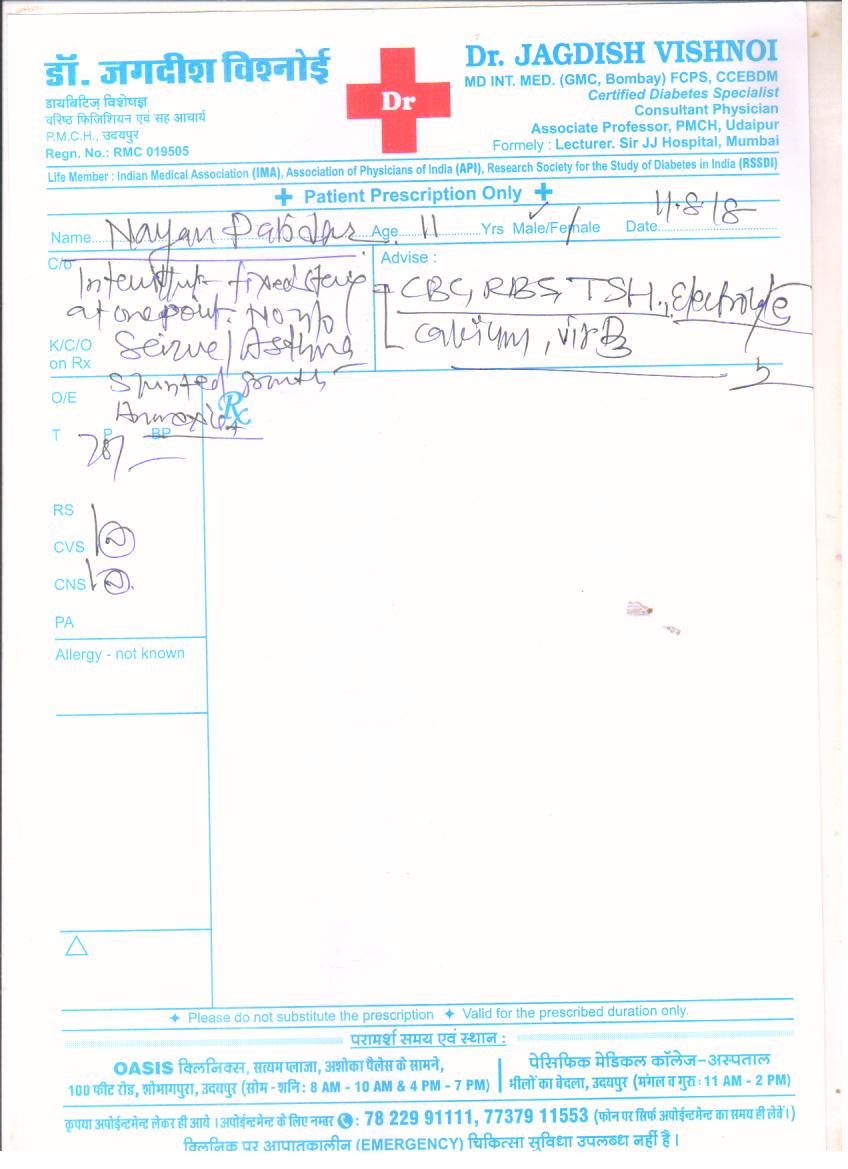 डॉ. जगदीश विश्नोई
डायबिटिज् विशेषज्ञ
वरिष्ठ फिजिशियन एवं सह आचार्य
P.M.C.H., उदयपुर
Regn. No.: RMC 019505
Dr
Dr. JAGDISH VISHNOI
MD INT. MED. (GMC, Bombay) FCPS, CCEBDM
Certified Diabetes Specialist
Consultant Physician
Associate Professor, PMCH, Udaipur
Formely : Lecturer. Sir JJ Hospital, Mumbai
Life Member : Indian Medical Association (IMA), Association of Physicians of India (API), Research Society for the Study of Diabetes in India (RSSDI)
Patient Prescription Only
Name Nayan Age 11 Yrs Male/Female Date 11.8.18
C/o
fixed stare
at one point. No h/o
K/C/O
on Rx
Asthma
Advise :
CBC, RBS, TSH, Electrolyte
Calcium, Vit B
O/E
Stunted growth
Rx
T P BP
RS
CVS
CNS
PA
Allergy - not known
Please do not substitute the prescription Valid for the prescribed duration only.
परामर्श समय एवं स्थान :
OASIS क्लिनिक्स, सत्यम प्लाजा, अशोका पैलेस के सामने,
100 फीट रोड, शोभागपुरा, उदयपुर (सोम - शनि : 8 AM - 10 AM & 4 PM - 7 PM)
पेसिफिक मेडिकल कॉलेज-अस्पताल
भीलों का बेदला, उदयपुर (मंगल व गुरु : 11 AM - 2 PM)
कृपया अपोईन्टमेन्ट लेकर ही आये । अपोईन्टमेन्ट के लिए नम्बर : 78 229 91111, 77379 11553 (फोन पर सिर्फ अपोईन्टमेन्ट का समय ही लेवें।)
क्लिनिक पर आपातकालीन (EMERGENCY) चिकित्सा सुविधा उपलब्ध नहीं है ।